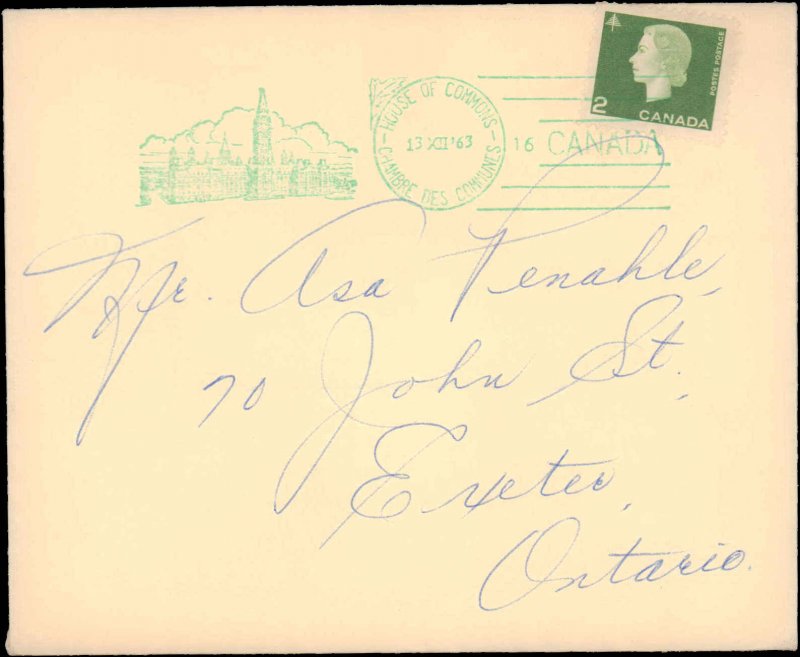 CANADA
POSTES POSTAGE
2
HOUSE OF COMMONS
13 XII '63
CHAMBRE DES COMMUNES
16 CANADA
Mr. Asa Penahle,
70 John St.,
Exeter,
Ontario.